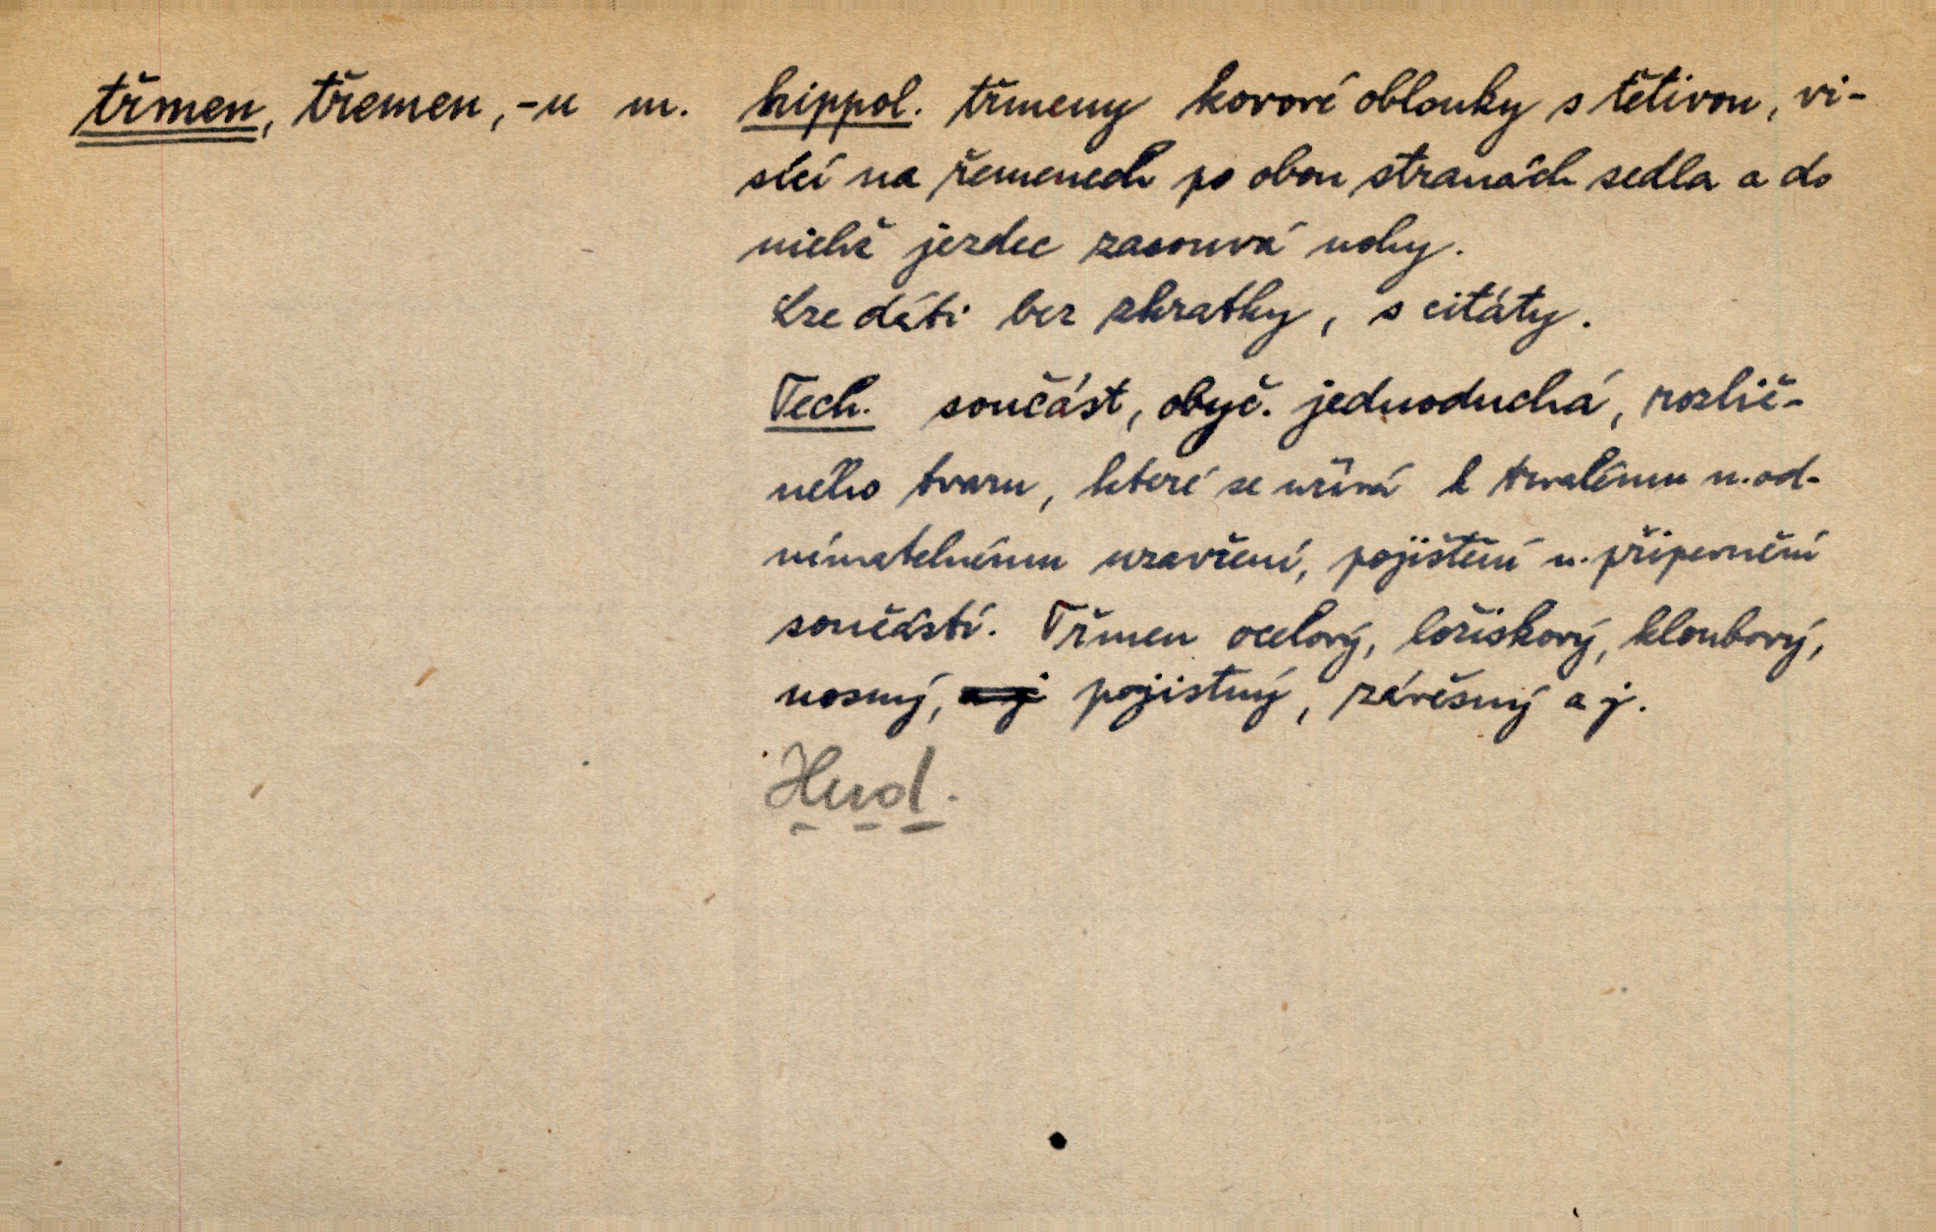 třmen, třemen, -u m. hippol. třmeny kovové oblouky s tětivou, vi-
sící na řemenech po obou stranách sedla a do
nichž jezdec zasouvá nohy.
Lze dáti bez zkratky, s citáty.
Tech. součást, obyč. jednoduchá, rozlič-
ného tvaru, které se užívá k trvalému n. od-
nímatelnému uzavření, pojištění n. připevnění
součástí. Třmen ocelový, ložiskový, kloubový,
nosný, a j pojistný, závěsný a j.
Hud.